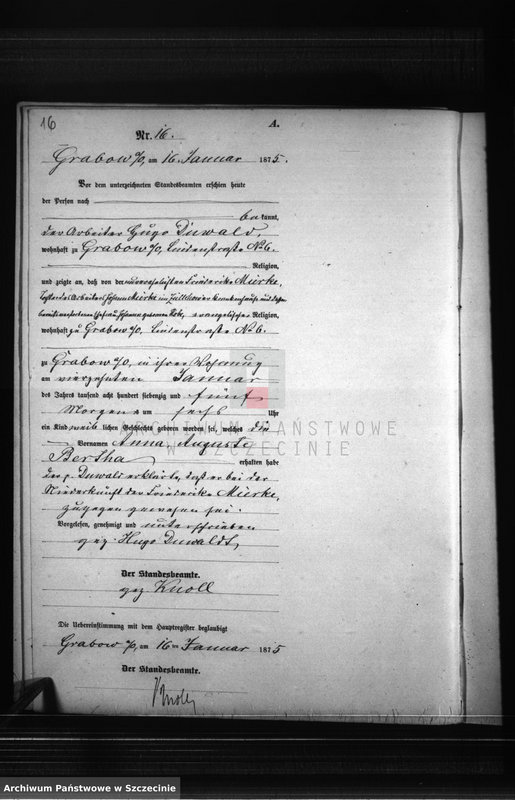 16
A.
Nr. 16.
Grabow a/O, am 16. Januar 1875.
Vor dem unterzeichneten Standesbeamten erschien heute
der Person nach
bekannt,
der Arbeiter Hugo Duwald,
wohnhaft zu Grabow a/O, Lindenstraße No 6.
Religion,
und zeigte an, daß von der unverehelichten Friederike Mierke,
Tochter des Arbeiters Johann Mierke im Züllchower
geborenen evangelischer Religion,
wohnhaft zu Grabow a/O, Lindenstraße No 6.
zu Grabow a/O, in ihrer Wohnung
am vierzehnten Januar
des Jahres tausend acht hundert siebenzig und fünf
Morgens um sechs Uhr
ein Kind weiblichen Geschlechts geboren worden sei, welches die
Vornamen Anna, Auguste
Bertha erhalten habe
der p. Duwald erklärte, daß er bei der
Niederkunft der Friederike Mierke,
zugegen gewesen sei.
Vorgelesen, genehmigt und unterschrieben
gez. Hugo Duwaldt,
Der Standesbeamte.
gez Knoll
Die Uebereinstimmung mit dem Hauptregister beglaubigt
Grabow a/O, am 16ten Januar 1875
Der Standesbeamte.
Knoll
ARCHIWUM PAŃSTWOWE
W SZCZECINIE
Archiwum Państwowe w Szczecinie